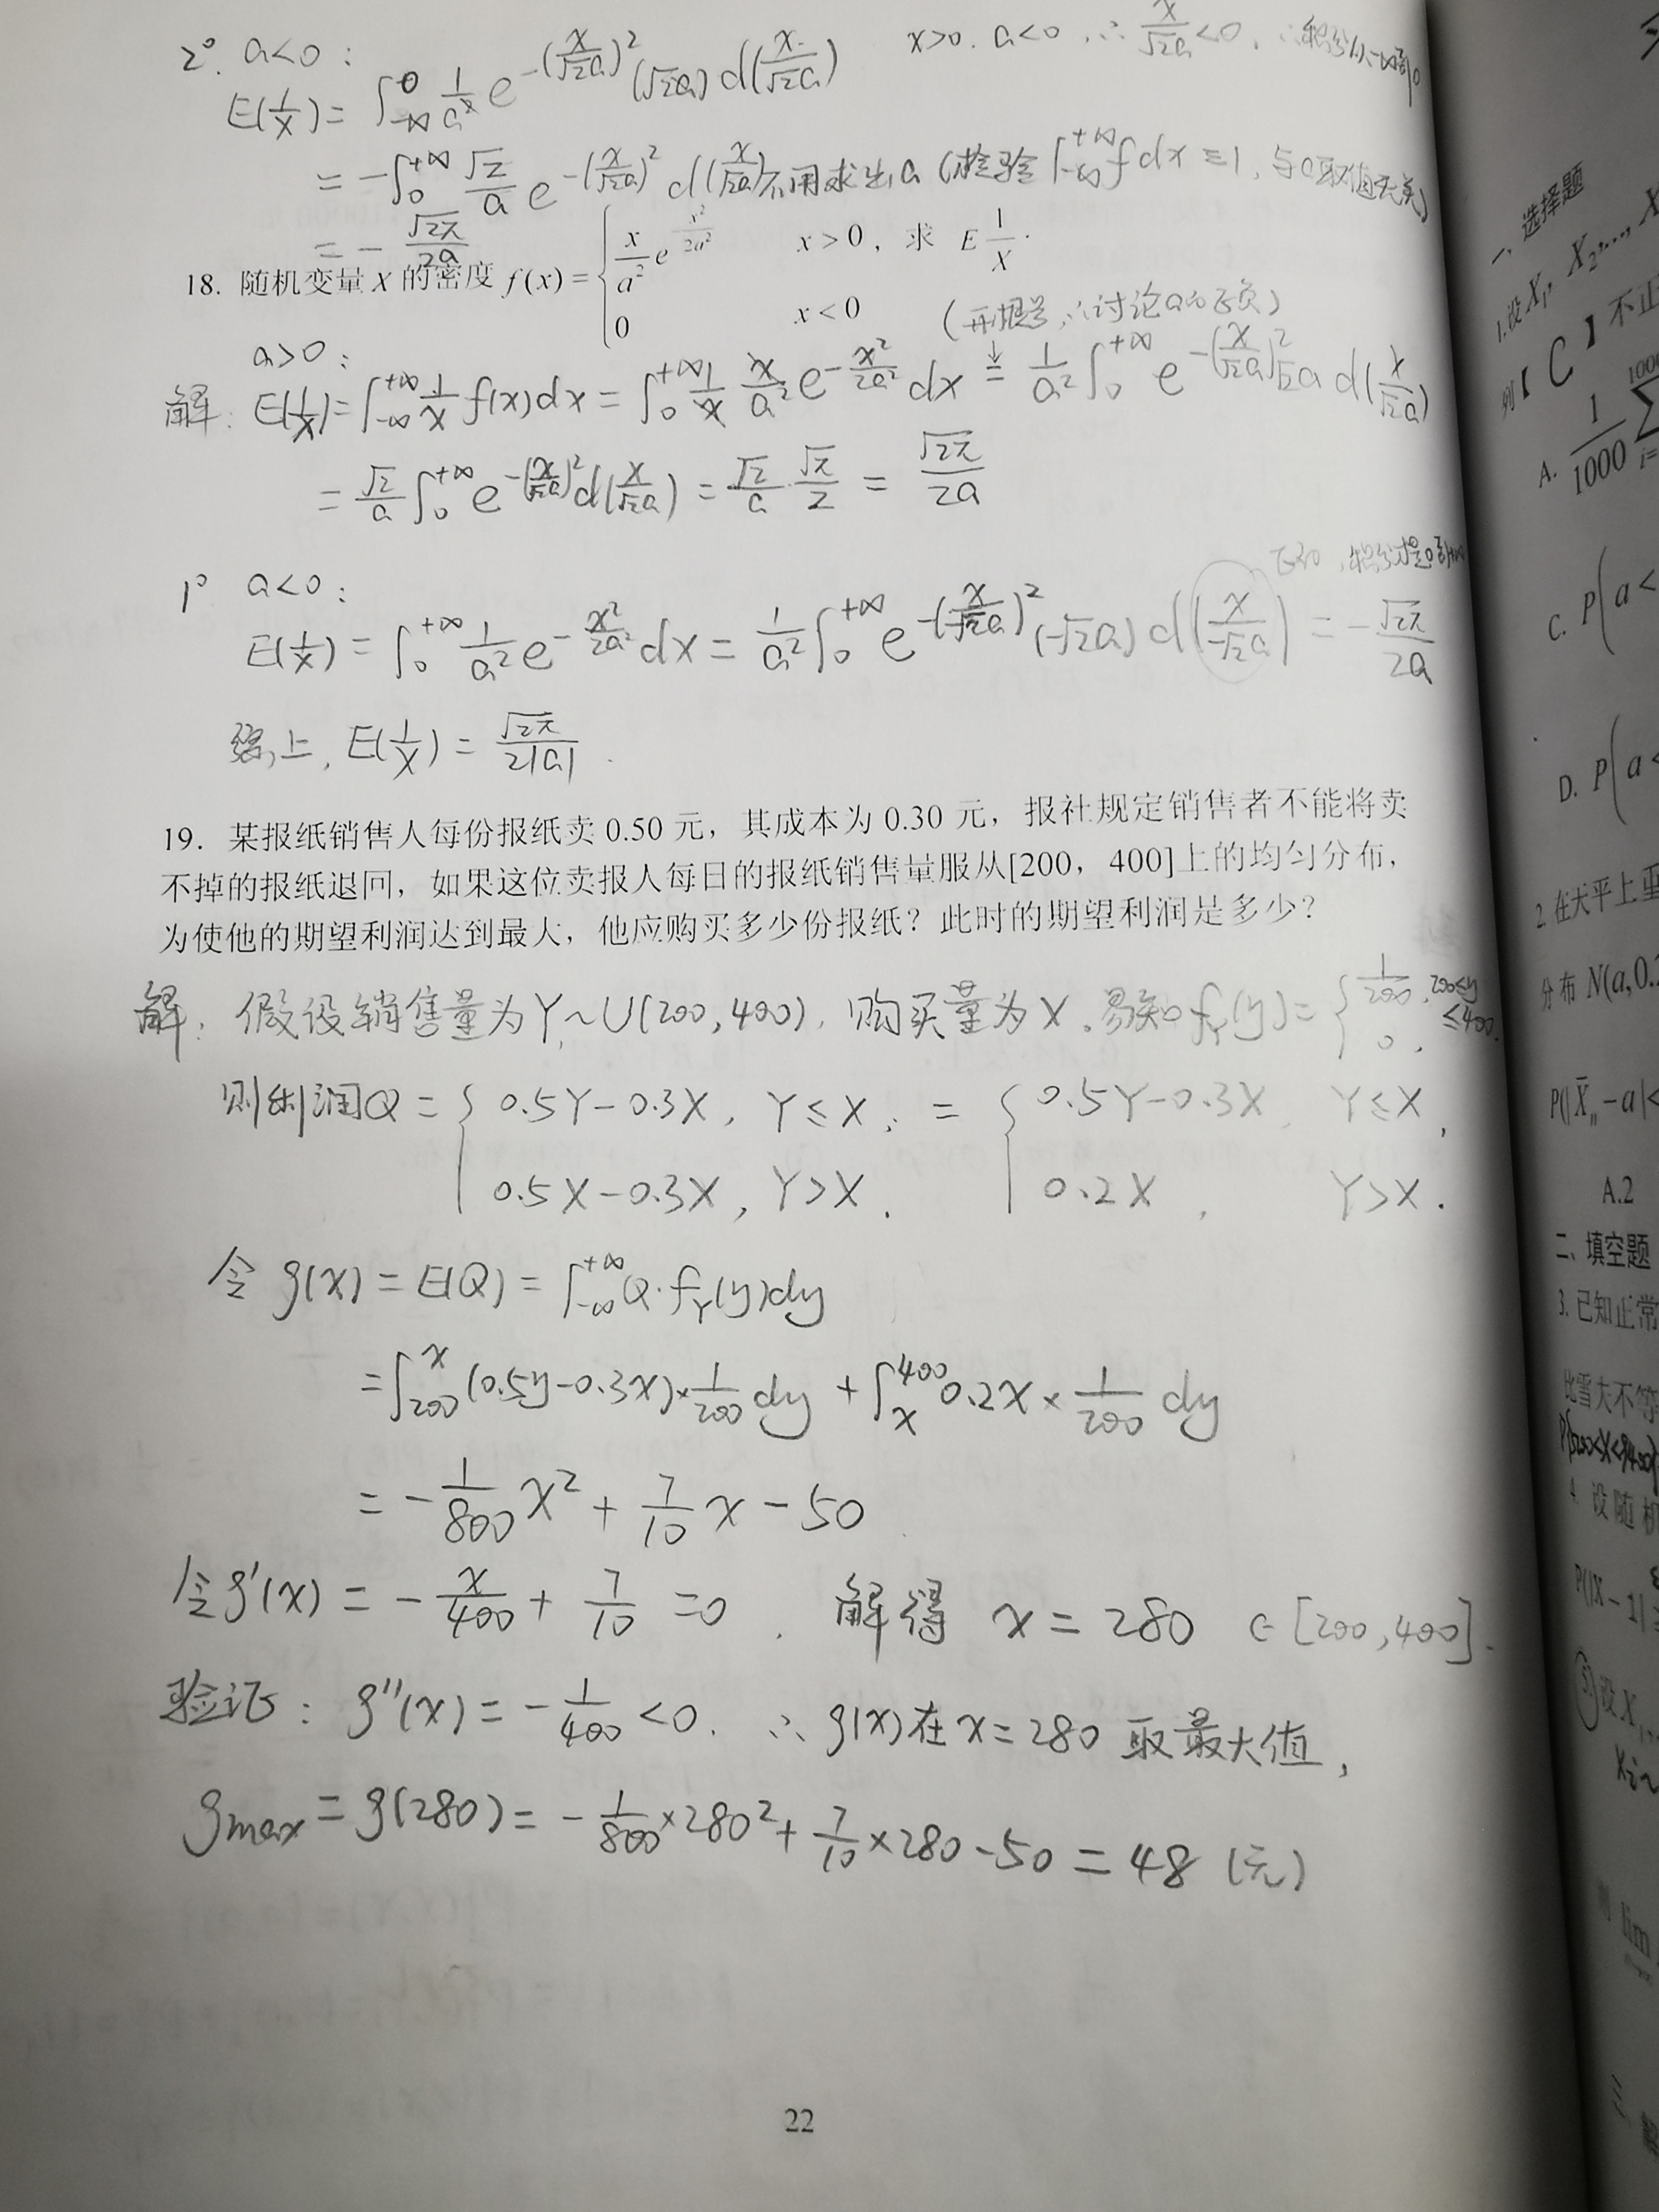 2° a<0: x>0. a<0, ∴ x/(√2a)<0,
E(1/X) = ∫_{-∞}^{0} 1/a² e^{-(x/(√2a))²} (√2a) d(x/(√2a))
= -∫_0^{+∞} √2/a e^{-(x/(√2a))²} d(x/(√2a)) 不用求出a (检验 ∫_{-∞}^{+∞} f dx ≡ 1, 与a取值无关)
= -√(2π)/(2a)
18. 随机变量 X 的密度 f(x) = { x/a² e^{-x²/(2a²)} x > 0, 求 E 1/X.
0 x < 0
(开根号, ∴讨论a的正负)
a>0:
解: E(1/X) = ∫_{-∞}^{+∞} 1/x f(x)dx = ∫_0^{+∞} 1/x x/a² e^{-x²/(2a²)} dx = 1/a² ∫_0^{+∞} e^{-(x/(√2a))²} √2a d(x/(√2a))
= √2/a ∫_0^{+∞} e^{-(x/(√2a))²} d(x/(√2a)) = √2/a · √π/2 = √(2π)/(2a)
1° a<0:
E(1/X) = ∫_0^{+∞} 1/a² e^{-x²/(2a²)} dx = 1/a² ∫_0^{+∞} e^{-(x/(√2a))²} (-√2a) d(x/(-√2a)) = -√(2π)/(2a)
综上, E(1/X) = √(2π)/(2|a|).
19. 某报纸销售人每份报纸卖 0.50 元, 其成本为 0.30 元, 报社规定销售者不能将卖
不掉的报纸退回, 如果这位卖报人每日的报纸销售量服从[200, 400]上的均匀分布,
为使他的期望利润达到最大, 他应购买多少份报纸? 此时的期望利润是多少?
解: 假设销售量为Y~U(200,400), 购买量为X. 易知 f_Y(y) = { 1/200, 200≤y≤400
0,
则利润Q = { 0.5Y-0.3X, Y≤X, = { 0.5Y-0.3X Y≤X,
0.5X-0.3X, Y>X. 0.2X, Y>X.
令 g(x) = E(Q) = ∫_{-∞}^{+∞} Q·f_Y(y)dy
= ∫_{200}^{x} (0.5y-0.3x)×1/200 dy + ∫_x^{400} 0.2x × 1/200 dy
= -1/800 x² + 7/10 x - 50
令g'(x) = -x/400 + 7/10 = 0, 解得 x = 280 ∈ [200,400].
验证: g''(x) = -1/400 < 0. ∴ g(x)在x=280取最大值,
gmax = g(280) = -1/800×280² + 7/10×280-50 = 48 (元)
22
一、选择题
1.设 X₁, X₂,…, X
列【 C 】不正
A. 1/1000 ∑
C. P(a<
D. P(a<
2. 在天平上重
分布 N(a,0.
P(|X̄ₙ-a|<
A.2
二、填空题
3. 已知正常
比雪夫不等
4. 设随机
P(|X-1|
⑤设X₁,
lim